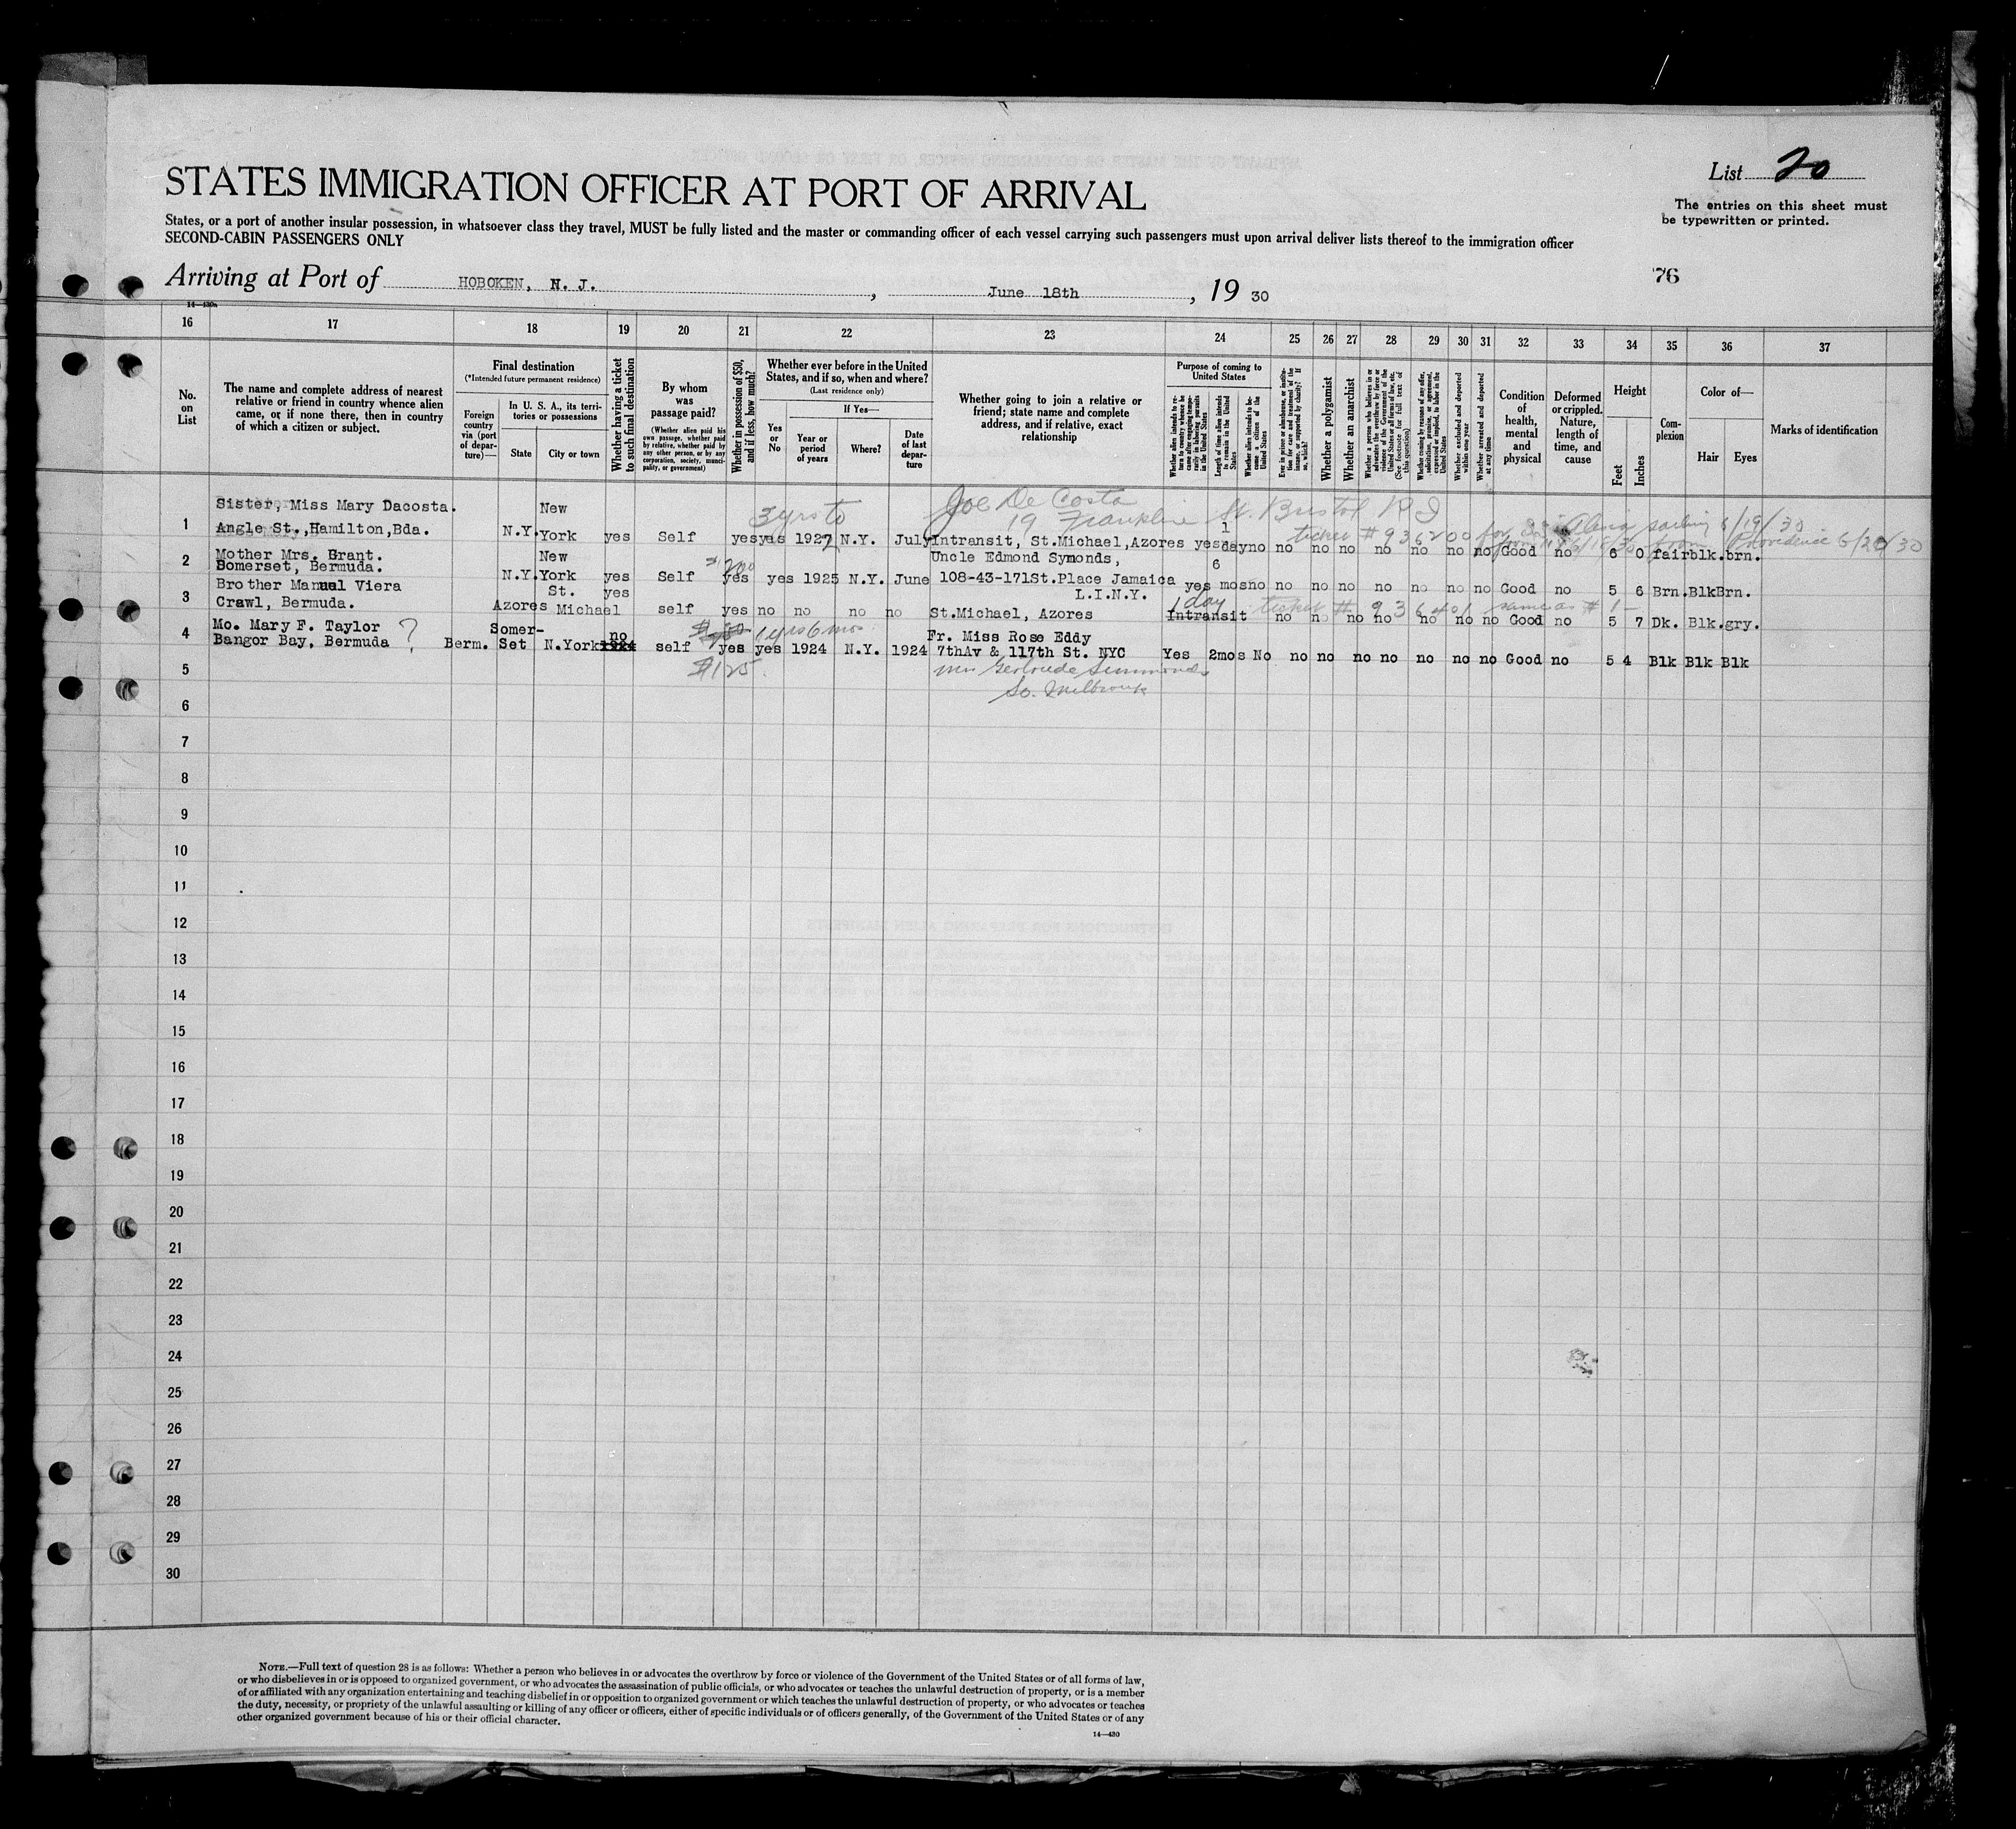 List 20
STATES IMMIGRATION OFFICER AT PORT OF ARRIVAL
The entries on this sheet must
be typewritten or printed.
States, or a port of another insular possession, in whatsoever class they travel, MUST be fully listed and the master or commanding officer of each vessel carrying such passengers must upon arrival deliver lists thereof to the immigration officer
SECOND-CABIN PASSENGERS ONLY
Arriving at Port of HOBOKEN, N. J. , June 18th , 19 30
76
14—430a
16 17 18 19 20 21 22 23 24 25 26 27 28 29 30 31 32 33 34 35 36 37
No.
on
List
The name and complete address of nearest
relative or friend in country whence alien
came, or if none there, then in country
of which a citizen or subject.
Final destination
(*Intended future permanent residence)
Foreign
country
via (port
of depar-
ture)—
In U. S. A., its terri-
tories or possessions
State
City or town
Whether having a ticket
to such final destination
By whom
was
passage paid?
(Whether alien paid his
own passage, whether paid
by any other person, or by any
corporation, society, munci-
pality, or government)
Whether in possession of $50,
and if less, how much?
Whether ever before in the United
States, and if so, when and where?
(Last residence only)
Yes
or
No
If Yes—
Year or
period
of years
Where?
Date
of last
depar-
ture
Whether going to join a relative or
friend; state name and complete
address, and if relative, exact
relationship
Purpose of coming to
United States
Length of time alien intends
to remain in the United
States
Whether alien intends to be-
come a citizen of the
United States
Whether a polygamist
Whether an anarchist
Whether excluded and deported
within one year
Whether arrested and deported
at any time
Condition
of
health,
mental
and
physical
Deformed
or crippled.
Nature,
length of
time, and
cause
Height
Feet
Inches
Com-
plexion
Color of—
Hair
Eyes
Marks of identification
Sister, Miss Mary Dacosta. New 3 yrs to Joe De Costa
19 Frankline St. Bristol R I
1 Angle St.,Hamilton,Bda. N.Y. York yes Self yes yes 1927 N.Y. July Intransit, St.Michael,Azores yes 1 day no no no no no no no no Good no 6 0 fair blk. brn.
ticket # 936200 for S.S. sailing 6/19/30
Providence 6/20/30
Mother Mrs. Grant. New $200 Uncle Edmond Symonds,
2 Somerset, Bermuda. N.Y. York yes Self yes yes 1925 N.Y. June 108-43-171St.Place Jamaica yes 6 mos no no no no no no no no Good no 5 6 Brn. Blk Brn.
L.I.N.Y.
Brother Manual Viera St. yes
3 Crawl, Bermuda. Azores Michael self yes no no no no St.Michael, Azores Intransit no no no no no no no Good no 5 7 Dk. Blk. gry.
1 day ticket # 936401 same as # 1 —
4 Mo. Mary F. Taylor ? Somer- no 1 yrs 6 mos Fr. Miss Rose Eddy
Bangor Bay, Bermuda Berm. Set N.York 1924 self yes yes 1924 N.Y. 1924 7thAv & 117th St. NYC Yes 2mos No no no no no no no no Good no 5 4 Blk Blk Blk
$125. Mrs Gertrude Simmonds
5
6
7
8
9
10
11
12
13
14
15
16
17
18
19
20
21
22
23
24
25
26
27
28
29
30
NOTE.—Full text of question 28 is as follows: Whether a person who believes in or advocates the overthrow by force or violence of the Government of the United States or of all forms of law,
or who disbelieves in or is opposed to organized government, or who advocates the assassination of public officials, or who advocates or teaches the unlawful destruction of property, or is a member
of or affiliated with any organization entertaining and teaching disbelief in or opposition to organized government or which teaches the unlawful destruction of property, or who advocates or teaches
the duty, necessity, or propriety of the unlawful assaulting or killing of any officer or officers, either of specific individuals or of officers generally, of the Government of the United States or of any
other organized government because of his or their official character.
14—430